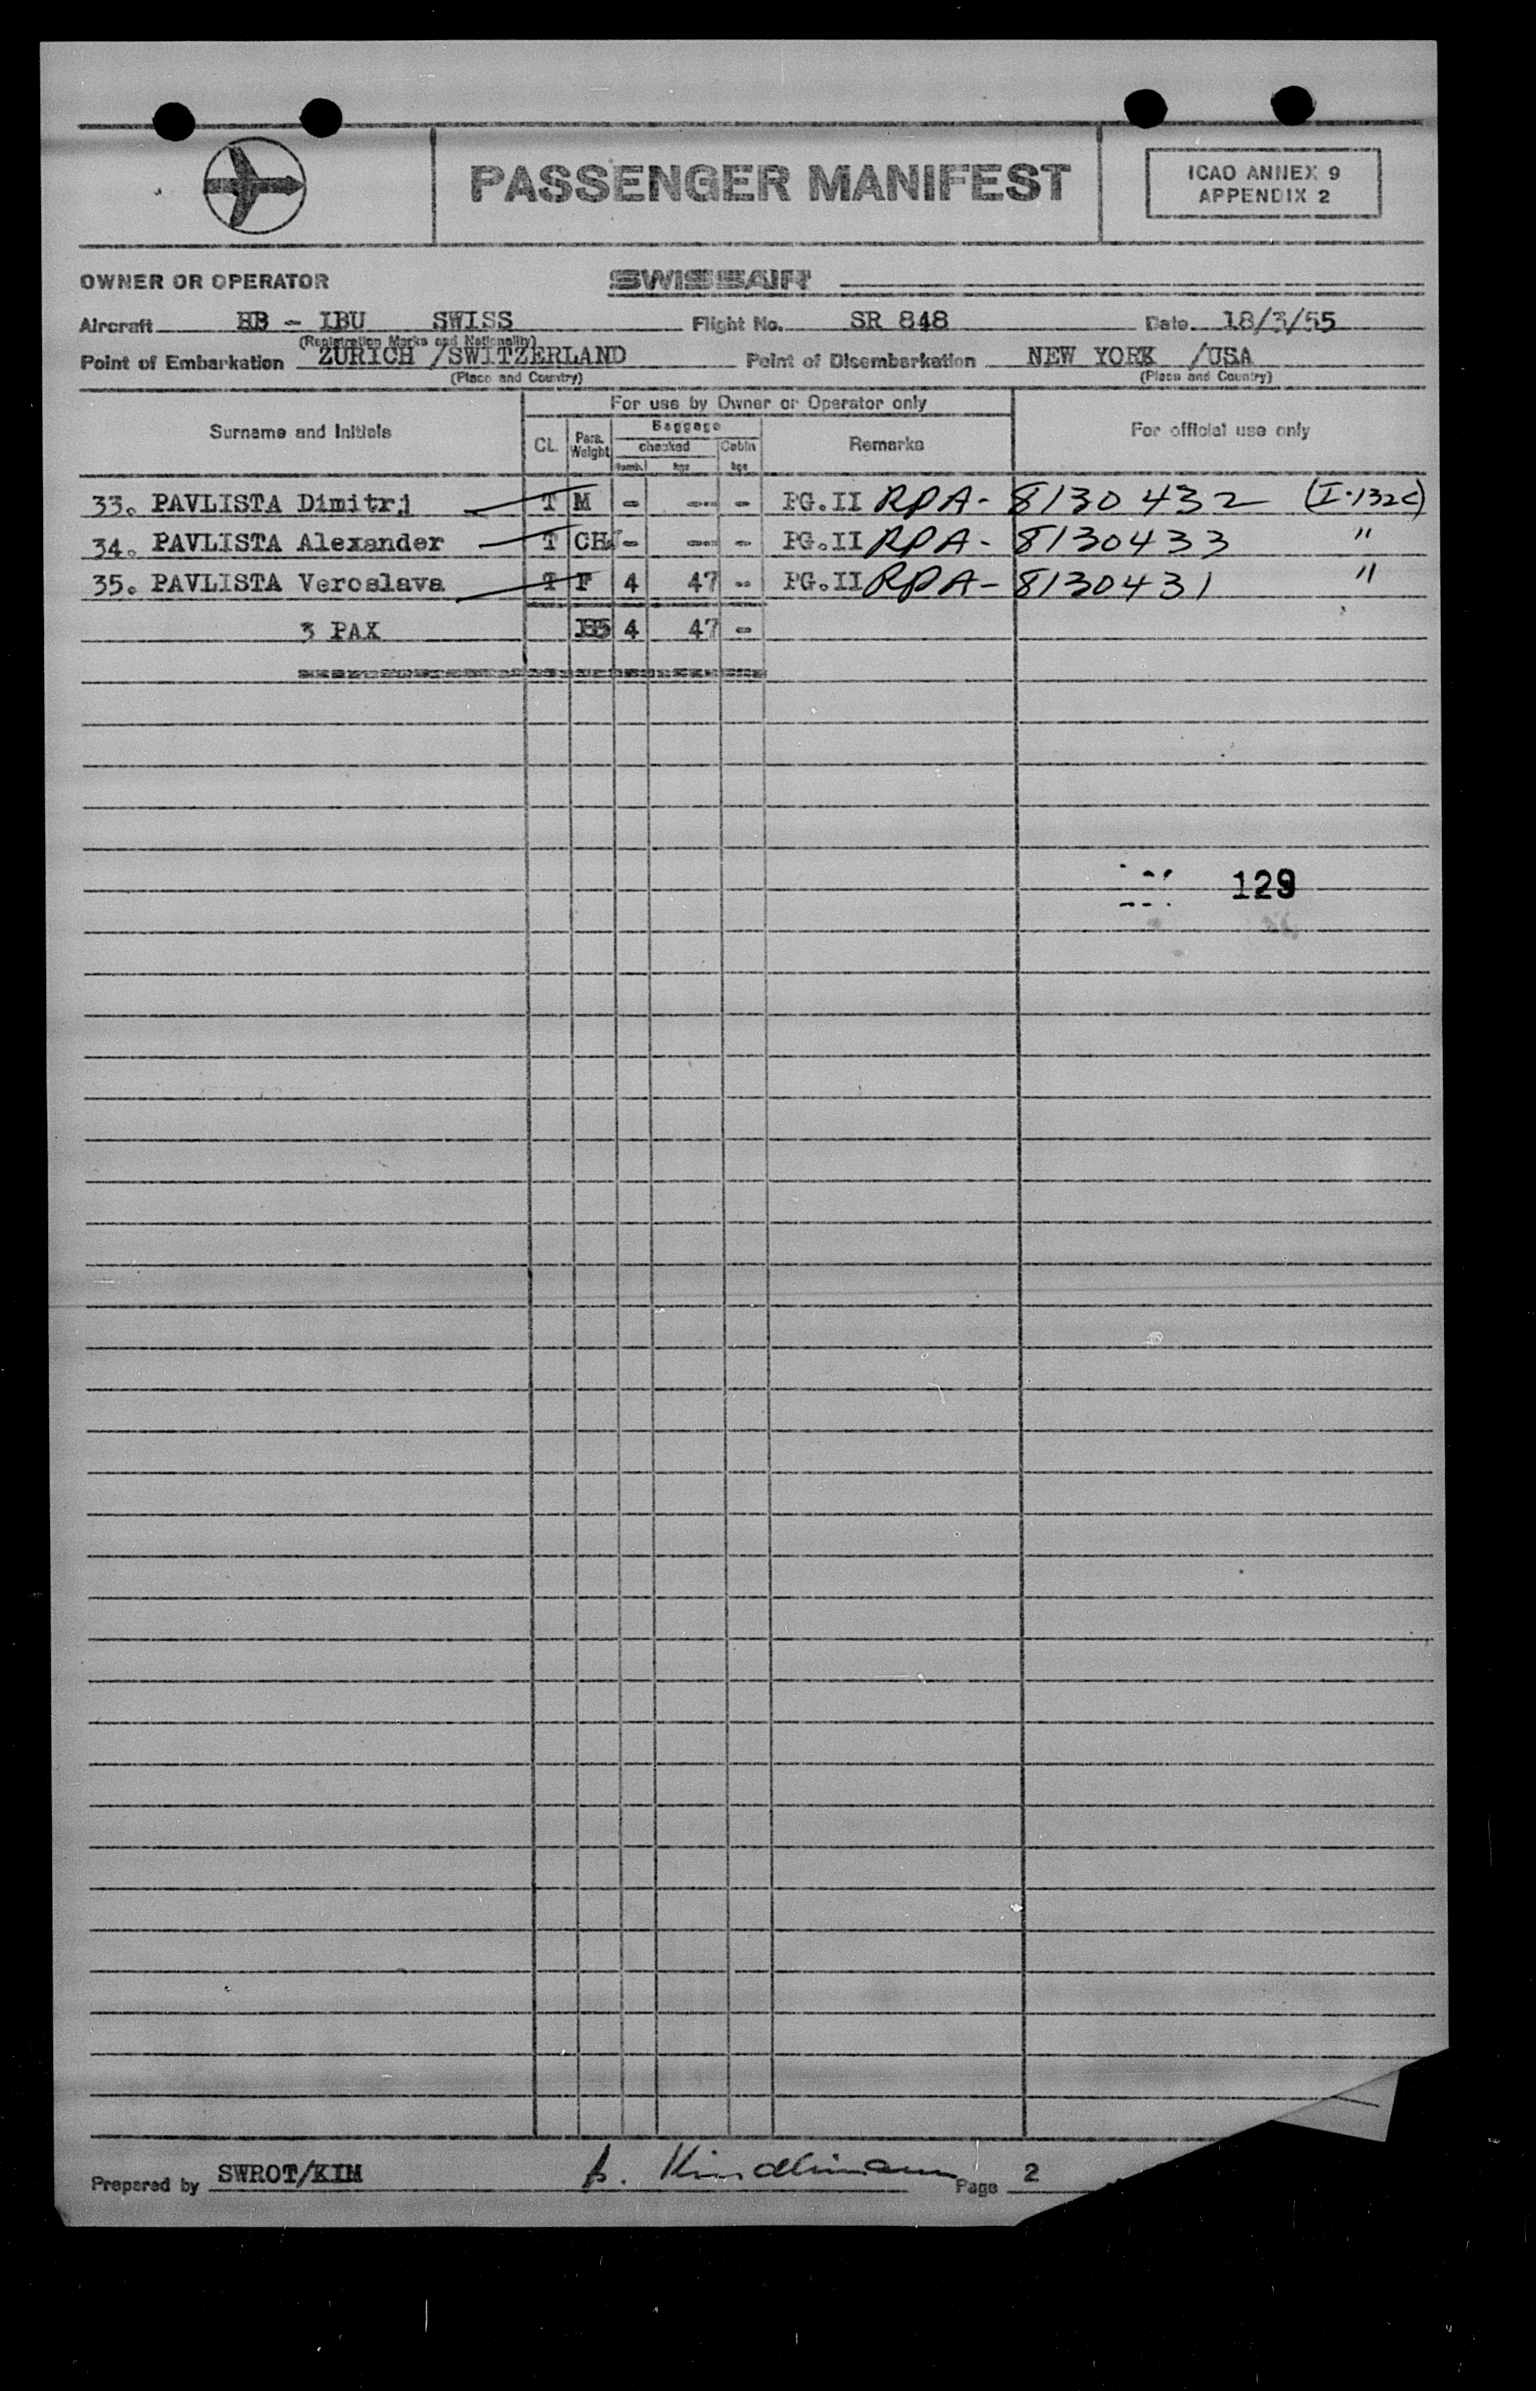 PASSENGER MANIFEST
ICAO ANNEX 9
APPENDIX 2
OWNER OR OPERATOR SWISSAIR
Aircraft HB - IBU SWISS Flight No. SR 848 Date 18/3/55
(Registration Marks and Nationality)
Point of Embarkation ZURICH /SWITZERLAND Point of Disembarkation NEW YORK /USA
(Place and Country) (Place and Country)
For use by Owner or Operator only
Surname and Initials CL. Pers. Weight Baggage Remarks For official use only
checked Cabin
Numb. kgs kgs
33. PAVLISTA Dimitrj T M - --- - PG.II RPA- 8130432 (I-132c)
34. PAVLISTA Alexander T CH - --- - PG.II RPA- 8130433 "
35. PAVLISTA Veroslava T F 4 47 -- PG.II RPA- 8130431 "
3 PAX 4 47 -
129
Prepared by SWROT/KIM Page 2